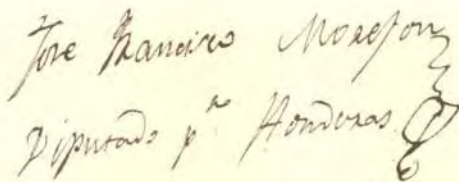 Jose Francisco Morejon
Diputado pr Honduras